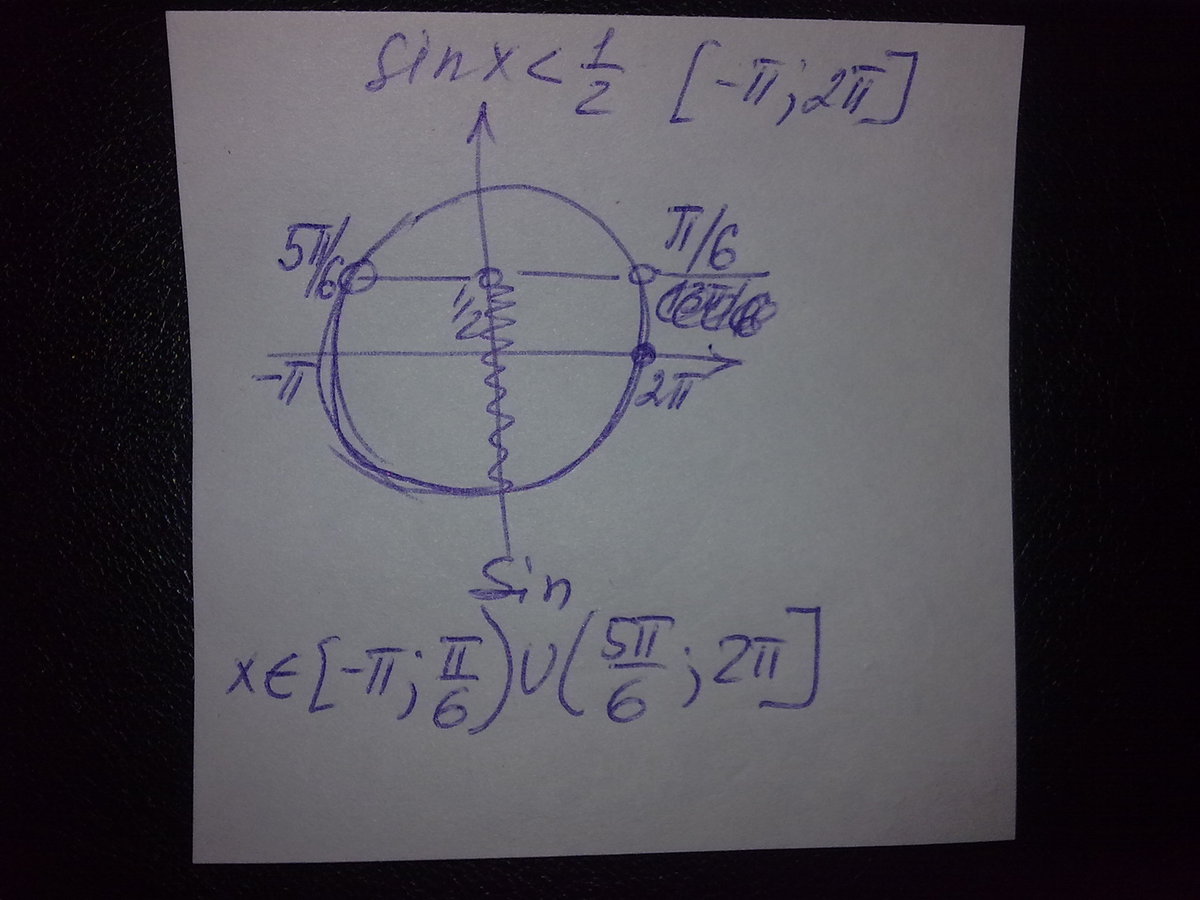 sin x < 1/2 [-π; 2π]
5π/6 π/6
1/2
-π 2π
sin
x∈[-π; π/6)∪(5π/6; 2π]